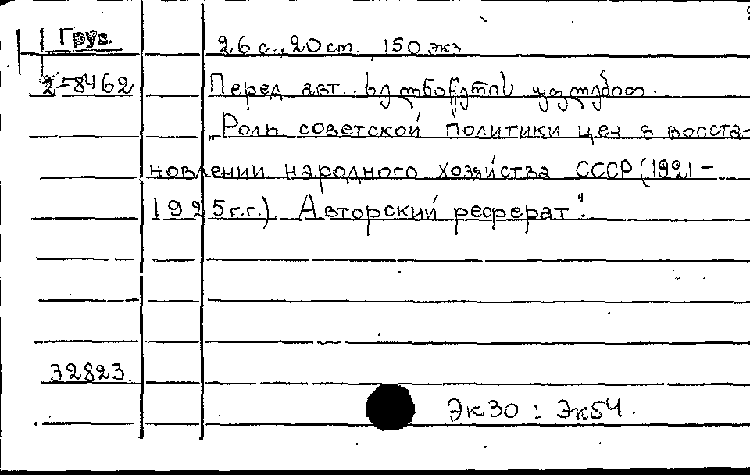 Груз.
26 с., 20 см. 150 экз
2-8462
Перед авт.:
„Роль советской политики цен в восста-
новлении народного хозяйства СССР (1921-
1925 г.г.) Авторский реферат".
32823
Эк30 : Эк54.